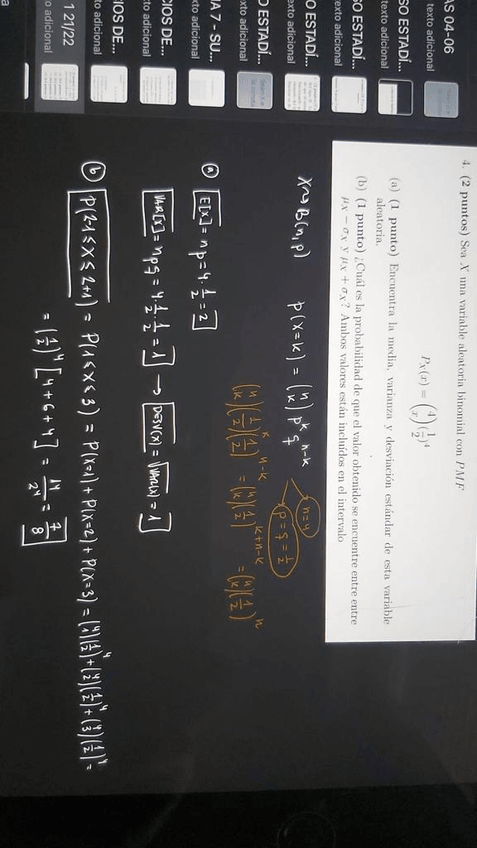 AS 04-06
texto adicional
SO ESTADÍ...
texto adicional
SO ESTADÍ...
texto adicional
O ESTADÍ...
exto adicional
O ESTADÍ...
xto adicional
IA 7 - SU...
xto adicional
CIOS DE...
to adicional
IOS DE...
to adicional
1 21/22
o adicional
4. (2 puntos) Sea X una variable aleatoria binomial con PMF
P_X(x) = (4 x)(1/2)^4
(a) (1 punto) Encuentra la media, varianza y desviación estándar de esta variable
aleatoria.
(b) (1 punto) ¿Cuál es la probabilidad de que el valor obtenido se encuentre entre entre
μ_X − σ_X y μ_X + σ_X? Ambos valores están incluídos en el intervalo
X~B(n,p) P(X=k) = (n k) p^k q^(n-k)
n=4
p=q=1/2
(n k)(1/2)^k(1/2)^(n-k) = (n k)(1/2)^(k+n-k) = (n k)(1/2)^n
(a) E[X] = np = 4·1/2 = 2
VAR[X] = npq = 4·1/2·1/2 = 1 → DESV(X) = √VAR(X) = 1
(b) P(2-1≤X≤2+1) = P(1≤X≤3) = P(X=1) + P(X=2) + P(X=3) = (4 1)(1/2)^4 + (4 2)(1/2)^4 + (4 3)(1/2)^4 =
= (1/2)^4 [4+6+4] = 14/2^4 = 7/8